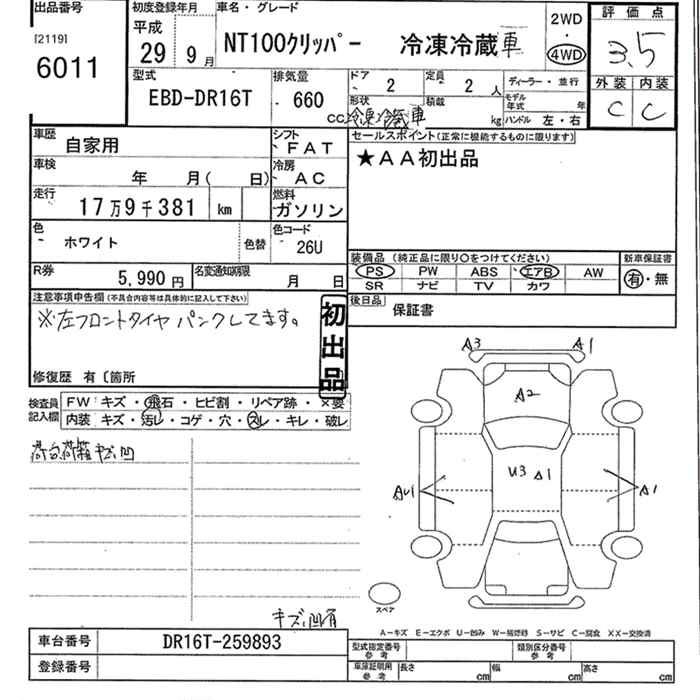 出品番号 初度登録年月 車名・グレード 2WD 評価点
[2119] 平成 ・
6011 29年 9月 NT100クリッパー 冷凍冷蔵車 4WD 3.5
型式 排気量 ドア 2 定員 2 人 ディーラー・並行 外装 内装
EBD-DR16T 660 形状 冷凍冷蔵車 積載 kg モデル年式 年 C C
ハンドル 左・右
車歴 自家用 シフト FAT セールスポイント(正常に機能するものに限ります)
車検 年 月( 日) 冷房 AC ★AA初出品
走行 17万9千381 km 燃料 ガソリン
色 ホワイト 色替 色コード 26U
装備品 (純正品に限り○をつけてください) 新車保証書
R券 5,990円 名変通知期限 月 日 PS PW ABS エアB AW 有・無
SR ナビ TV カワ
注意事項申告欄(不具合内容等は具体的に記入して下さい) 後日品 保証書
※左フロントタイヤ パンクしてます。
初出品
修復歴 有〔箇所
検査員記入欄 FW キズ・飛石・ヒビ割・リペア跡・×要
内装 キズ・汚レ・コゲ・穴・スレ・キレ・破レ
荷台荷箱キズ凹
A3 A1
A2
U3 A1
AU1 A1
スペア
キズ、凹有
A-キズ E-エクボ U-凹み W-補修跡 S-サビ C-腐食 XX-交換済
車台番号 DR16T-259893 型式指定番号 参考 類別区分番号 参考
登録番号 車庫証明用 参考 長さ cm 幅 cm 高さ cm